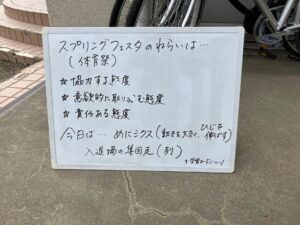 スプリングフェスタのねらいは…
(体育祭)
☆協力する態度
☆意欲的に取りくむ態度
☆責任ある態度
今日は… めにニクス(動きを大きく、ひじを伸ばす)
入退場の集団走(列)